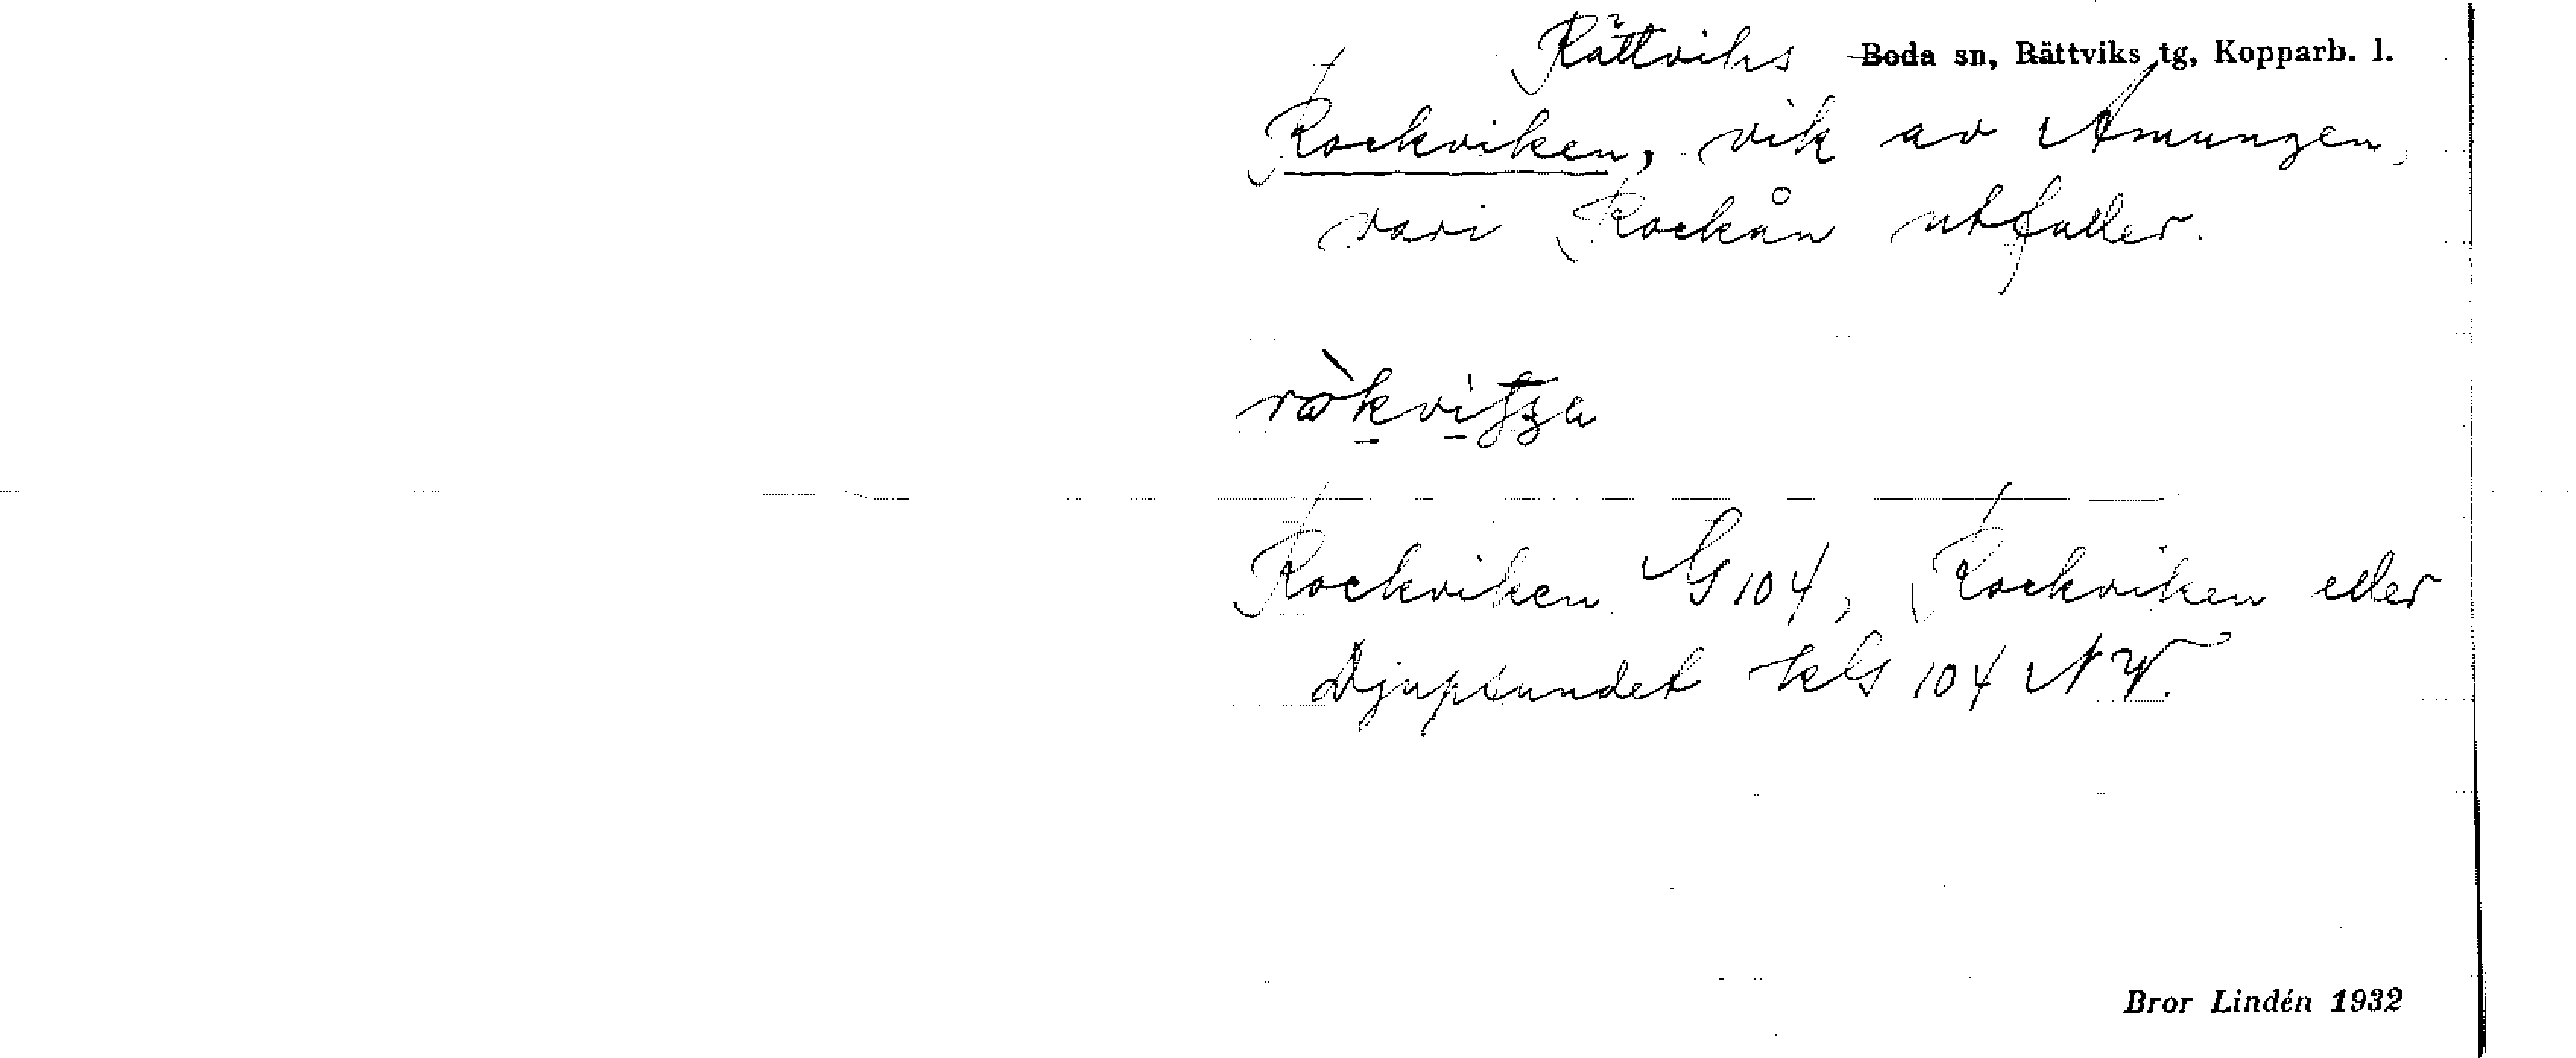 Rättviks Boda sn, Rättviks tg, Kopparb. l.
Rockviken, vik av Amungen,
vari Rockån utfaller.
Rockviken G 104, Rockviken eller
Djupsundet kG 104 NV.
Bror Lindén 1932